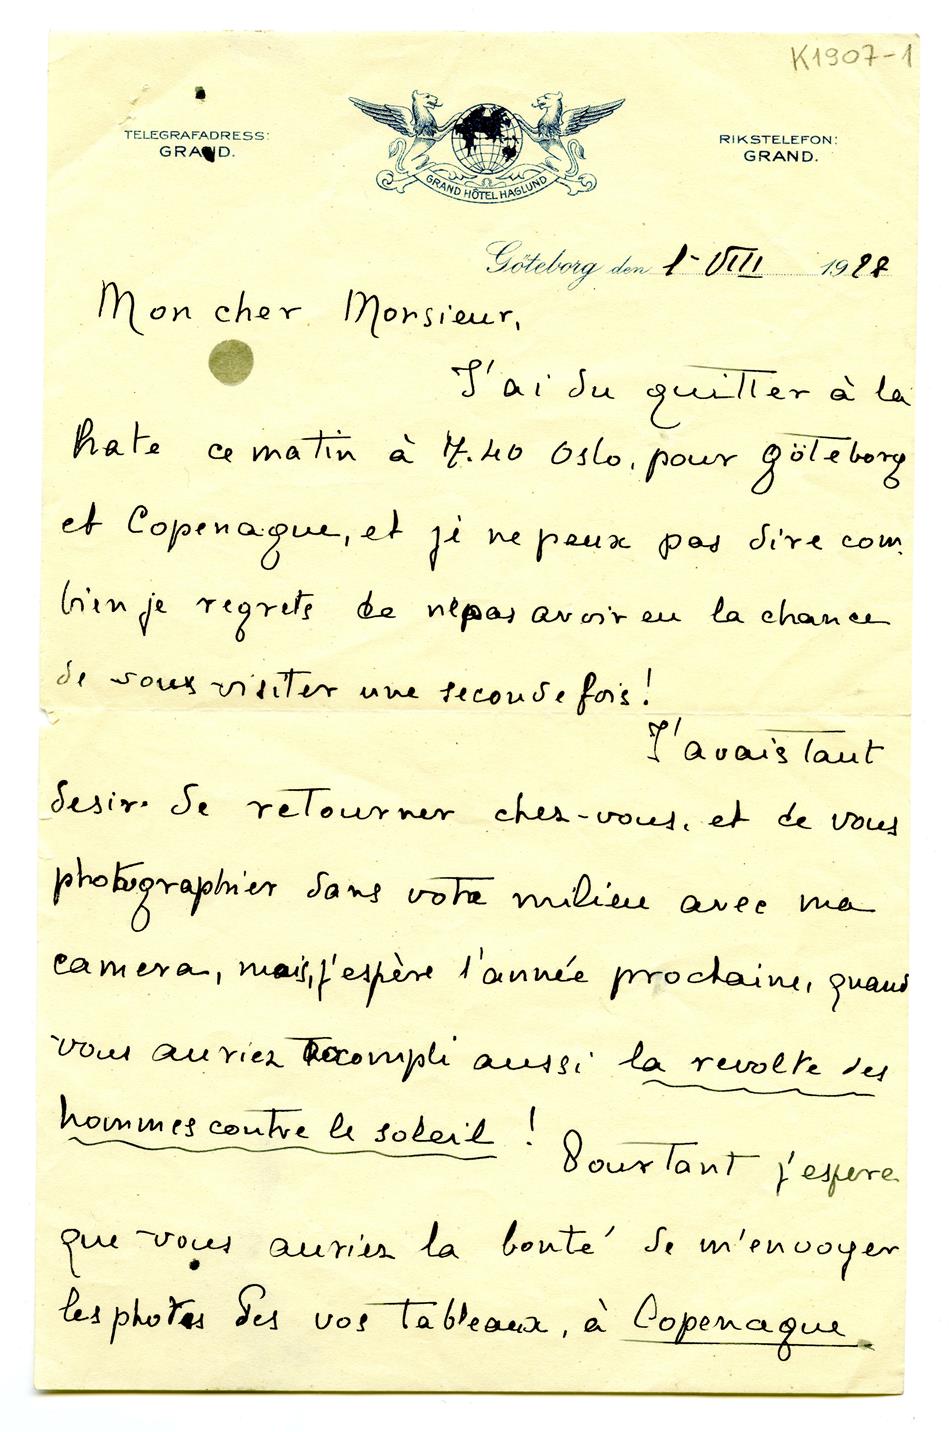 K1907-1
TELEGRAFADRESS:
GRAND.
GRAND HÔTEL HAGLUND
RIKSTELEFON:
GRAND.
Göteborg den 1-VIII 1928
Mon cher Monsieur,
J'ai du quitter à la
hate ce matin à 7.40 Oslo, pour Göteborg
et Copenague, et je ne peux pas dire com
bien je regrets de ne pas avoir eu la chance
de vous visiter une seconde fois!
J'avais tant
desir de retourner chez-vous, et de vous
photographier dans votre milieu avec ma
camera, mais, j'espère l'année prochaine, quand
vous auriez accompli aussi la revolte des
hommes contre le soleil!
Pourtant j'espere
que vous auriez la bonté de m'envoyer
les photos des vos tableaux, à Copenague